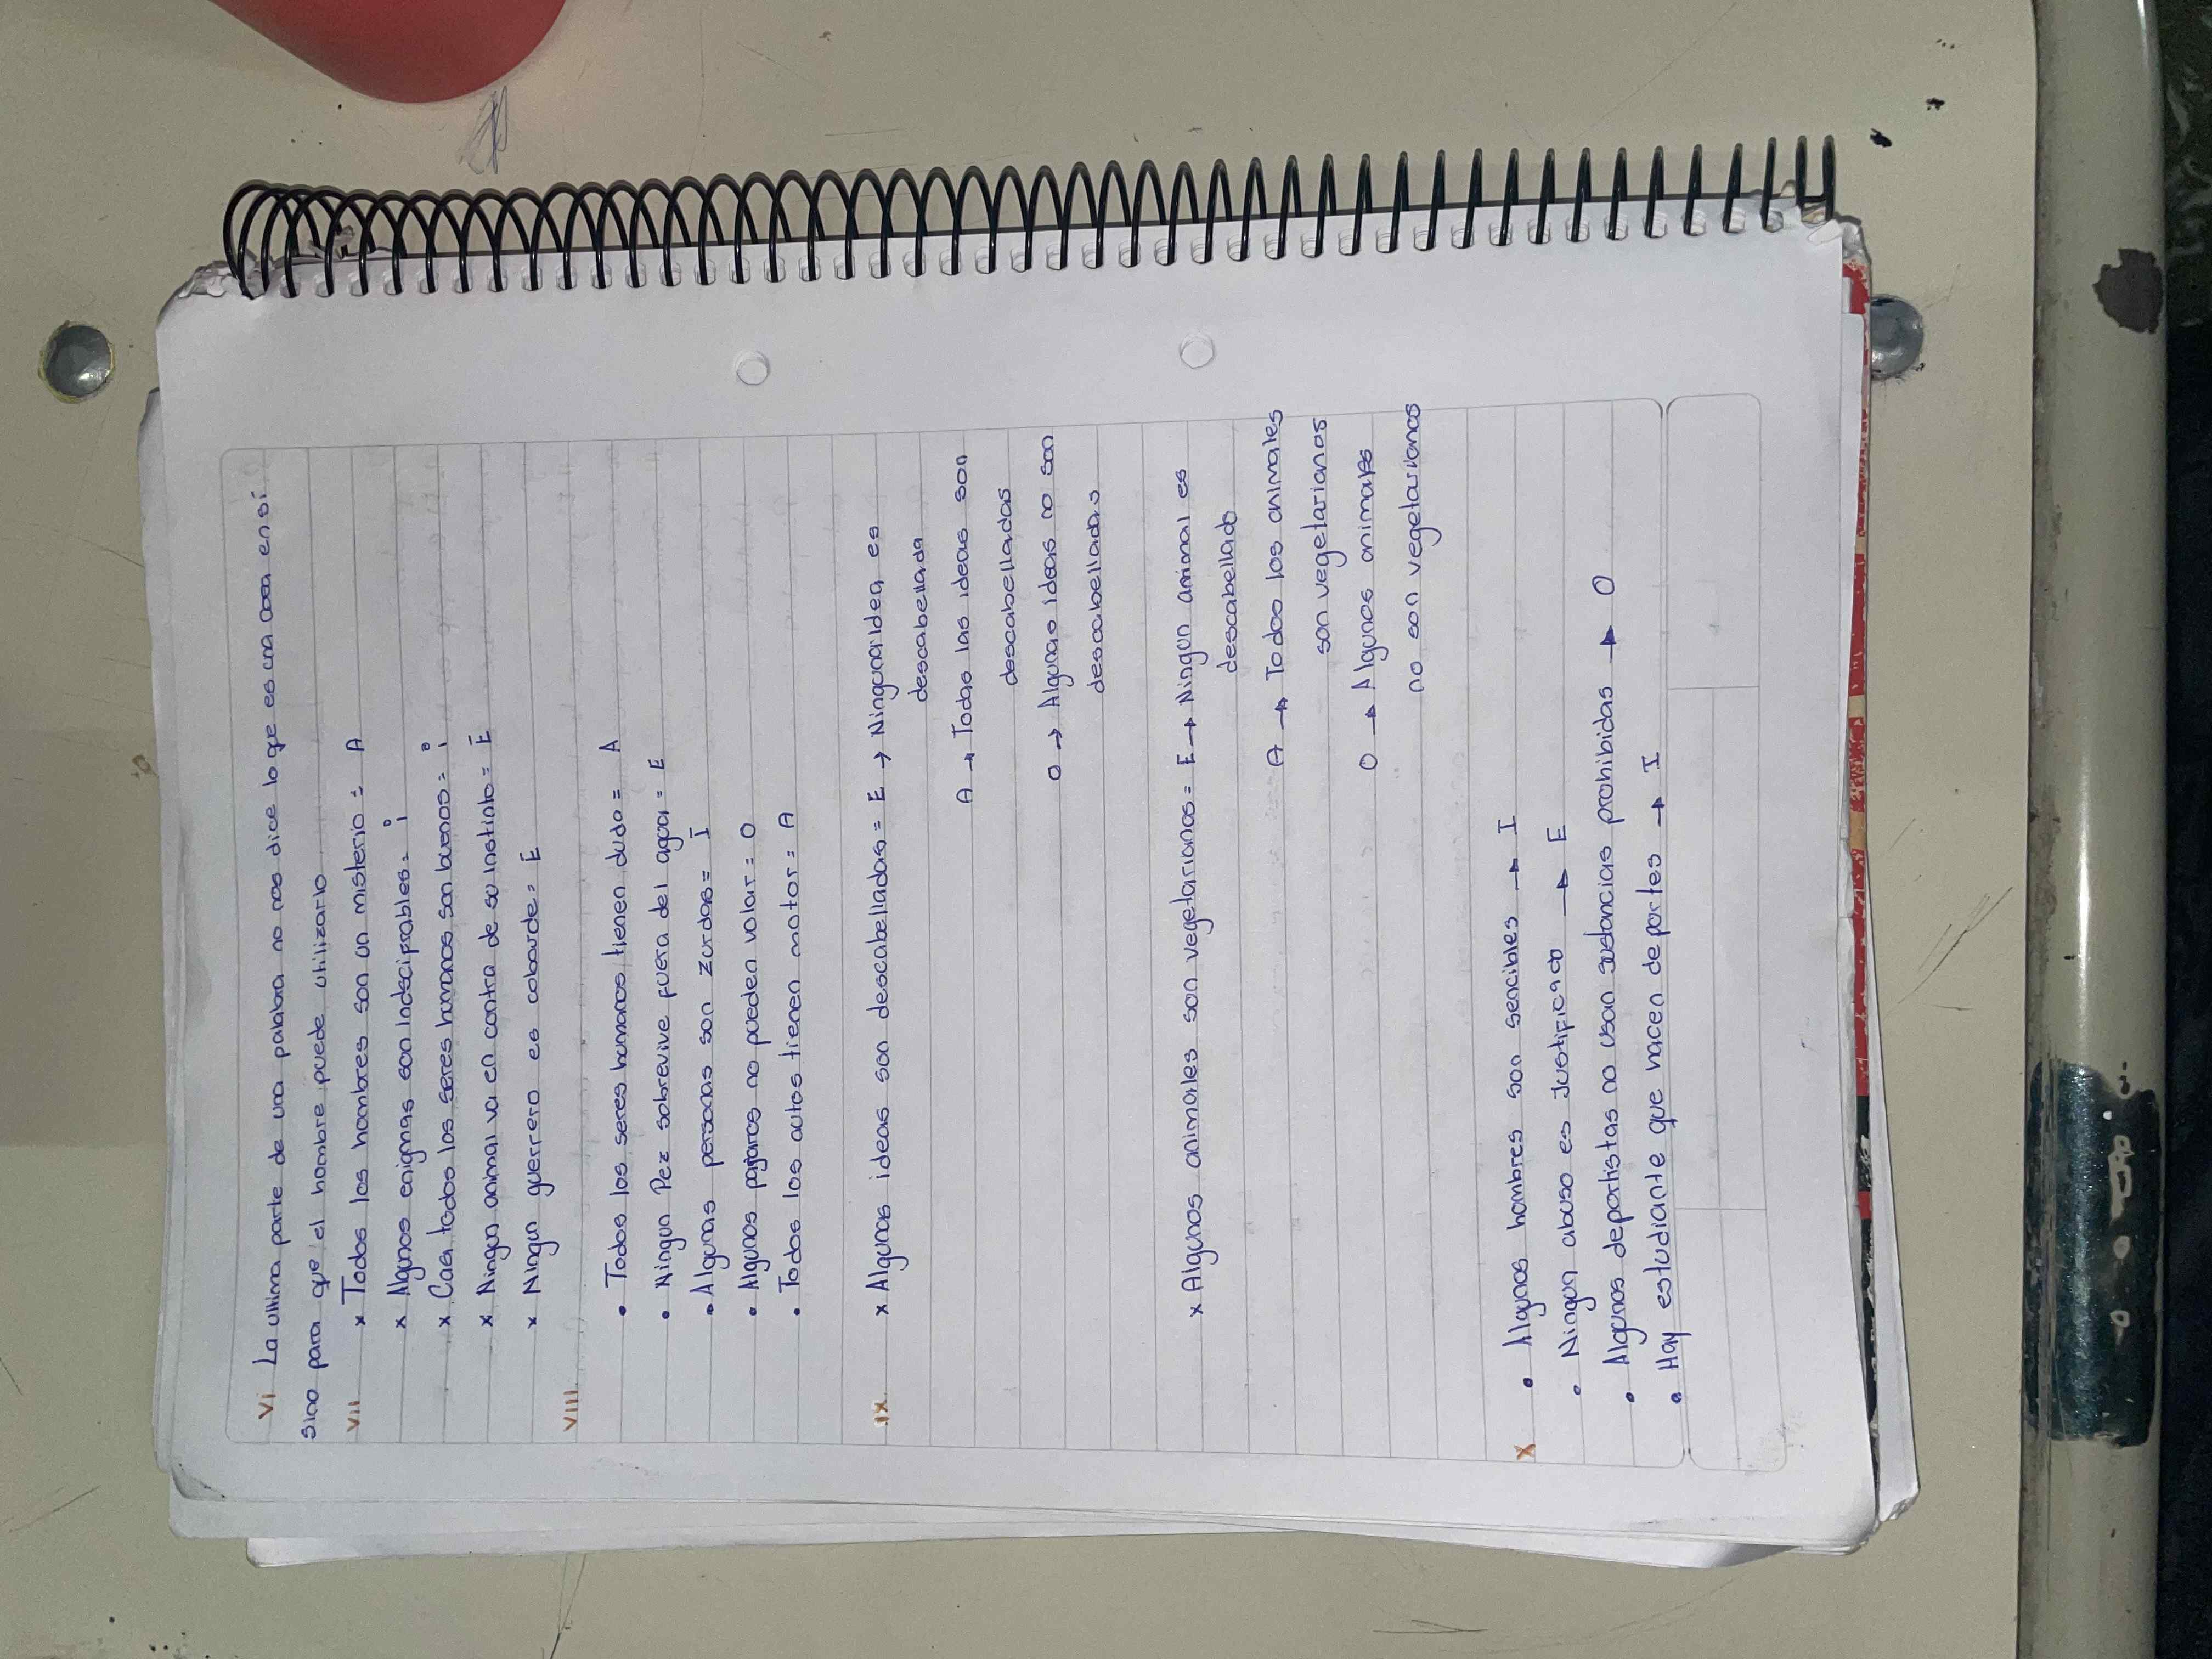 vi La ultima parte de una palabra no nos dice lo que es una cosa en sí
sino para que el hombre puede utilizarlo
vii x Todos los hombres son un misterio = A
x Algunos enigmas son indsciprables = i
x Casi todos los seres humanos son buenos = i
x Ningun animal va en contra de su instinto = E
x Ningun guerrero es cobarde = E
viii
• Todos los seres humanos tienen duda = A
• Ningun Pez sobrevive fuera del agua = E
• Algunas personas son zurdas = I
• Algunos pajaros no pueden volar = O
• Todos los autos tienen motor = A
ix x Algunas ideas son descabelladas = E → Ninguna idea es
descabellada
A → Todas las ideas son
descabelladas
O → Algunas ideas no son
descabelladas
x Algunos animales son vegetarianos = E → Ningun animal es
descabellado
A → Todos los animales
son vegetarianos
O → Algunos animales
no son vegetarianos
x • Algunos hombres son sencibles → I
• Ningun abuso es Justificado → E
• Algunos deportistas no usan sustancias prohibidas → O
• Hay estudiante que hacen deportes → I